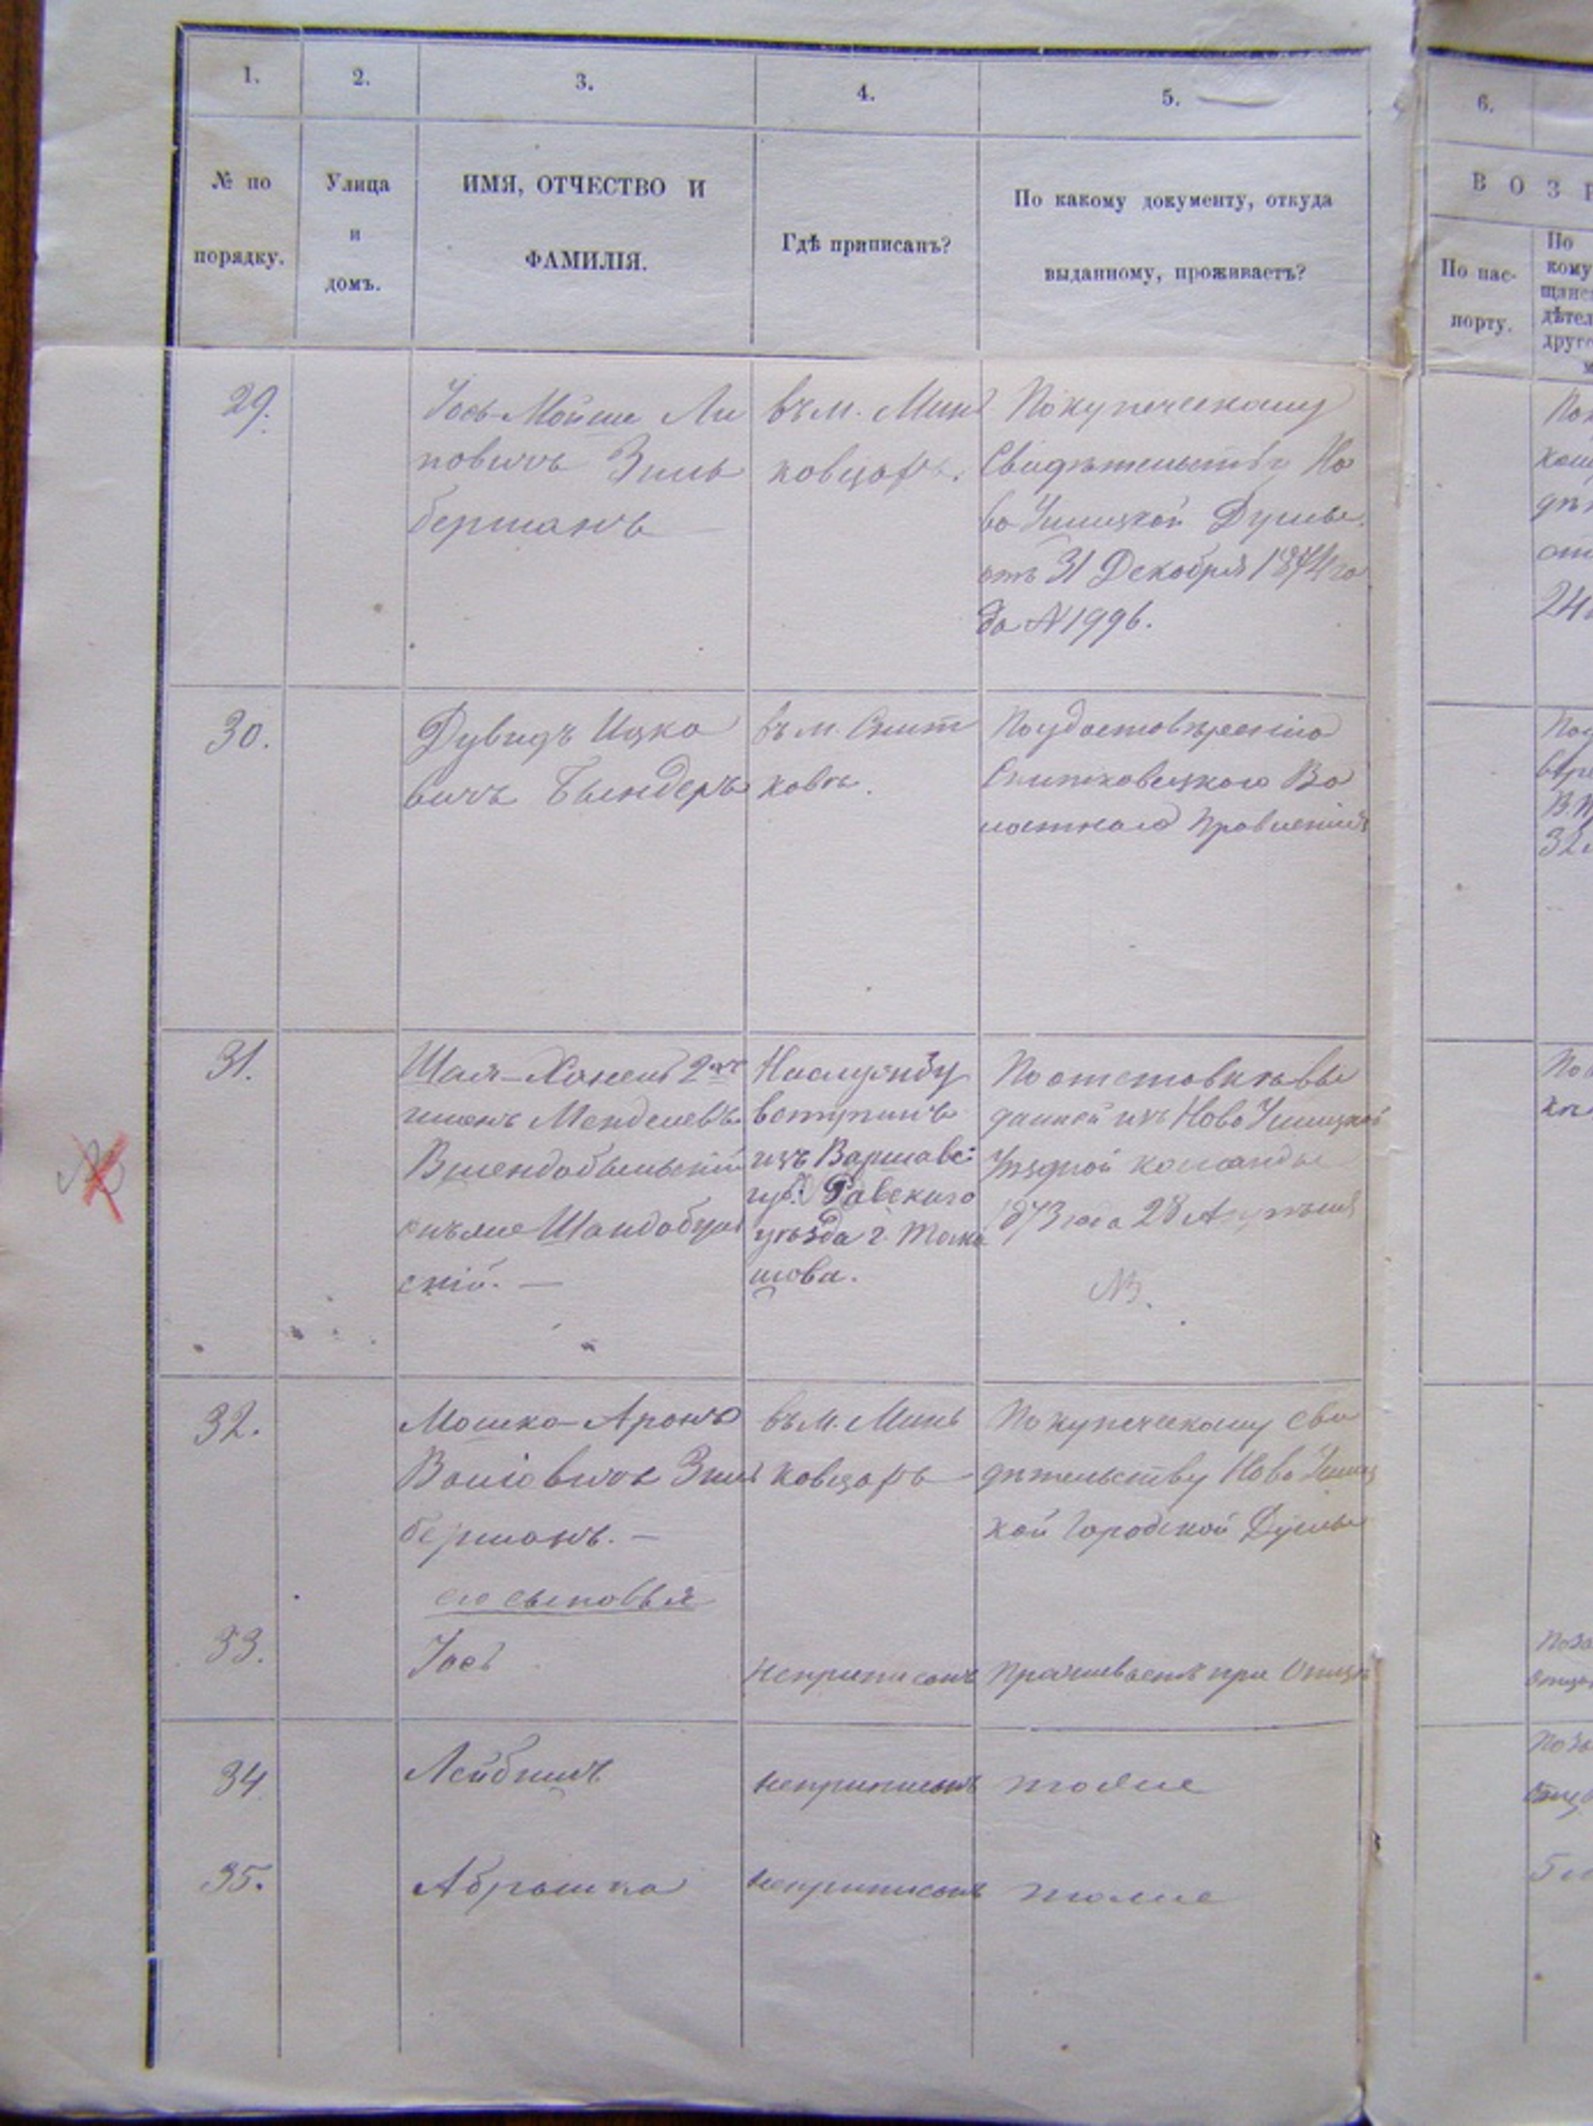 1.
2.
3.
4.
5.
6.
№ по
порядку.
Улица
и
домъ.
ИМЯ, ОТЧЕСТВО И
ФАМИЛІЯ.
Гдѣ приписанъ?
По какому документу, откуда
выданному, проживаетъ?
В О З Р
По пас-
порту.
По
кому
29.
Іось-Мойше Ли
повичъ Зиль
берманъ
въ м. Минь
ковцахъ.
По купеческому
Свидѣтельству Но
во Ушицкой Думы
отъ 31 Декабря 1874 го
да № 1996.
30.
Дувидъ Ицко
вичъ Бындеръ
въ м. Снит
ковкѣ.
По удостовѣренію
Снитковецкого Во
лостного Правленія
31.
Шая-Ханель 2
Менделевъ
онъ же
скій. —
На службу
вступилъ
изъ Варшавс:
губ. Равскаго
уѣзда г. Тома
шова.
По отставкѣ вы
данной изъ Ново Ушицкой
Уѣздной команды
1873 года 28
№
32.
Мошко-Аронъ
Зиль
берманъ. —
его сыновья
въ м. Минь
ковцахъ
По купеческому сви
дѣтельству Ново Ушиц
кой Городской Думы
33.
Іось
неприписанъ
Проживаетъ при Отцѣ
34
Лейбишъ
неприписанъ
тоже
35.
Абрашка
неприписанъ
тоже